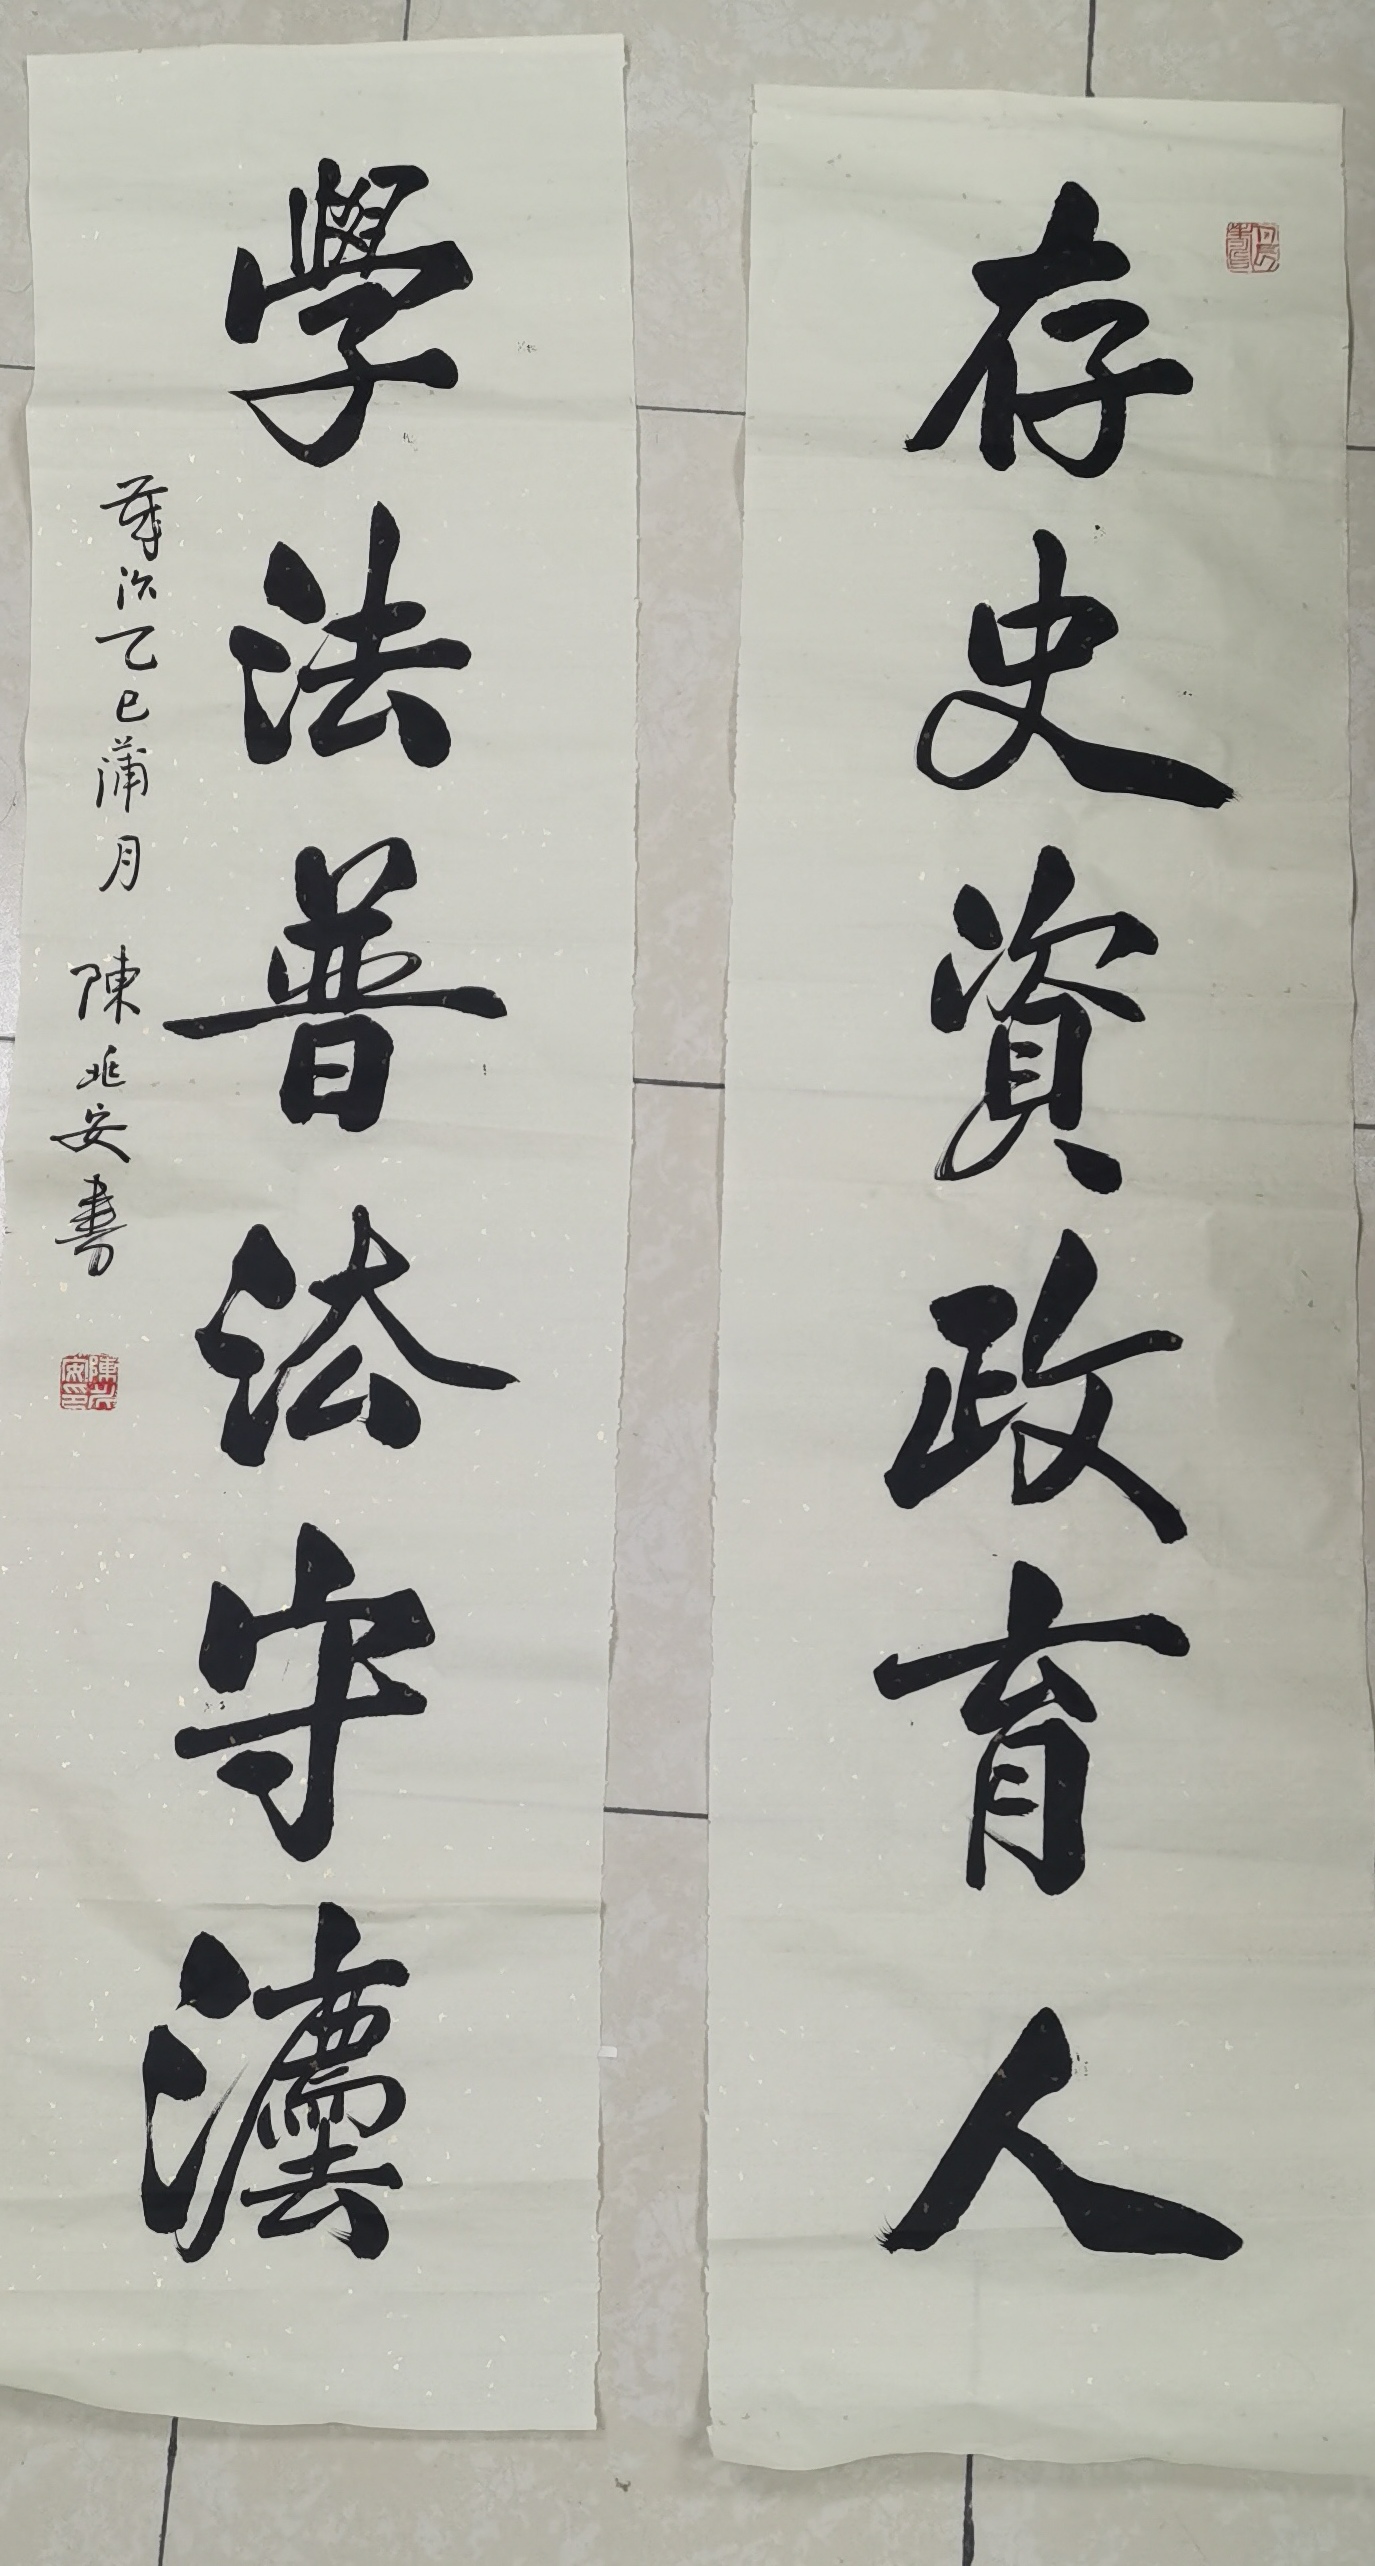 存史資政育人
學法普法守灋
歲次乙巳蒲月 陳兆安書
陳兆安印